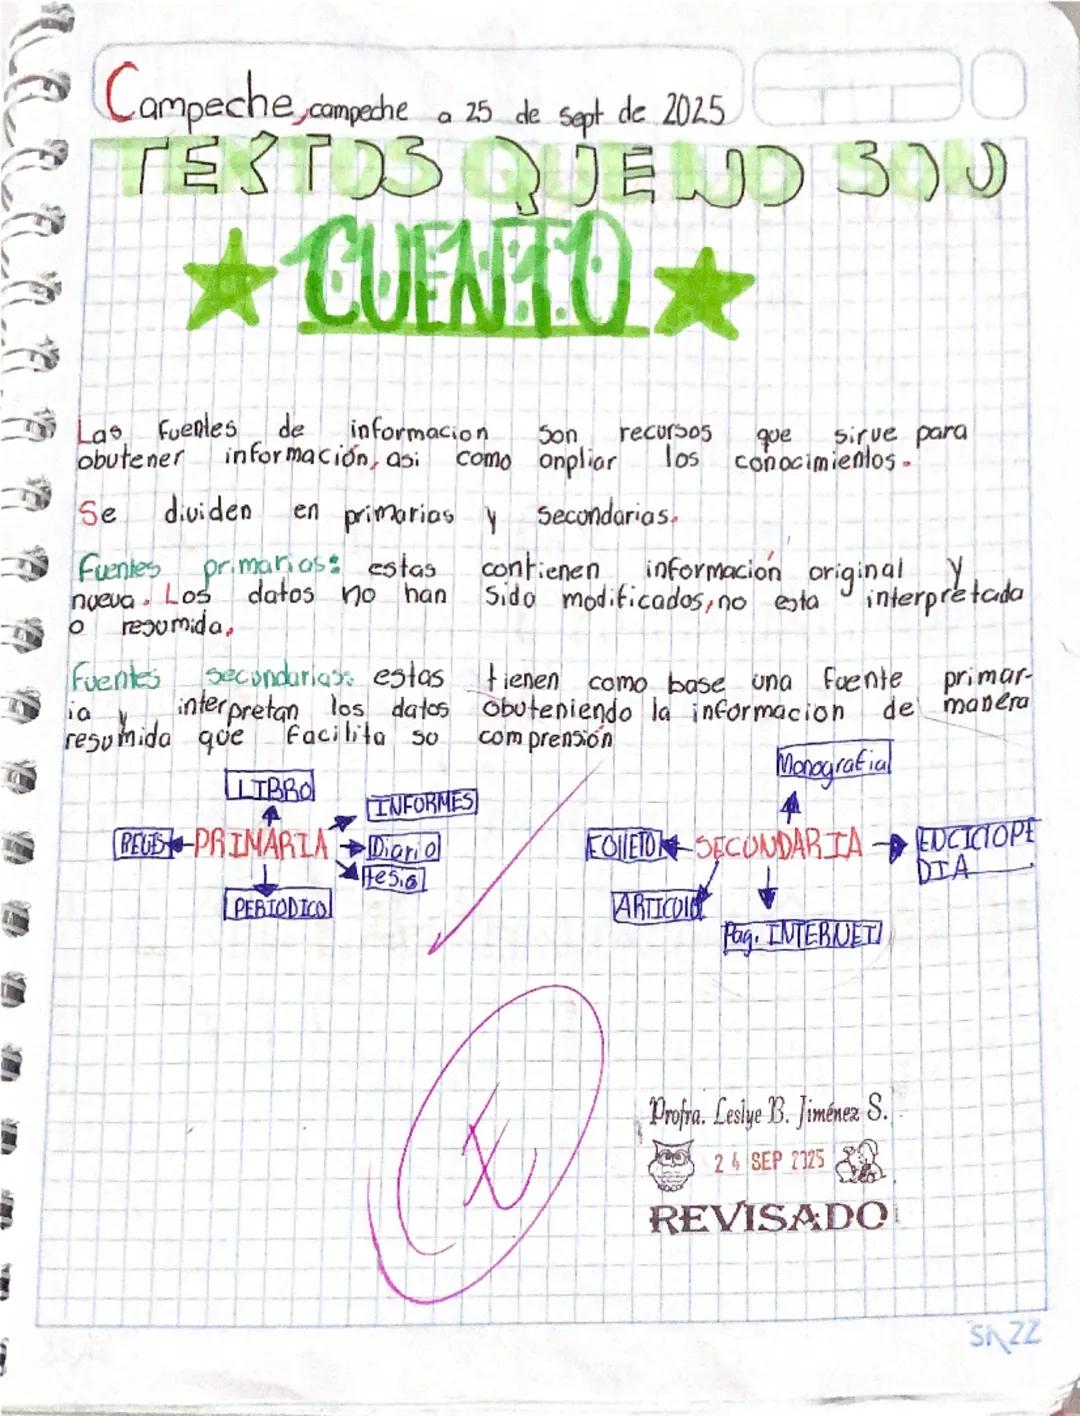 Campeche, campeche a 25 de sept de 2025
TEXTOS QUE NO SON
CUENTO
Las fuentes de informacion son recursos que sirve para
obutener información, asi como onpliar los conocimientos.
Se dividen en primarias y secundarias.
Fuentes primarias: estas contienen información original y
nueva. Los datos no han sido modificados, no esta interpretada
o resumida.
Fuentes secundarias: estas tienen como base una fuente primar-
ia y interpretan los datos obuteniendo la informacion de manera
resumida que facilita so comprensión
Monografia
LIBRO
INFORMES
PRIMARIA
Diario
Tesis
PERIODICO
FOLLETO
SECUNDARIA
ENCICLOPE
DIA
ARTICULO
Pag. INTERNET
Profra. Leslye B. Jiménez S.
24 SEP 2025
REVISADO